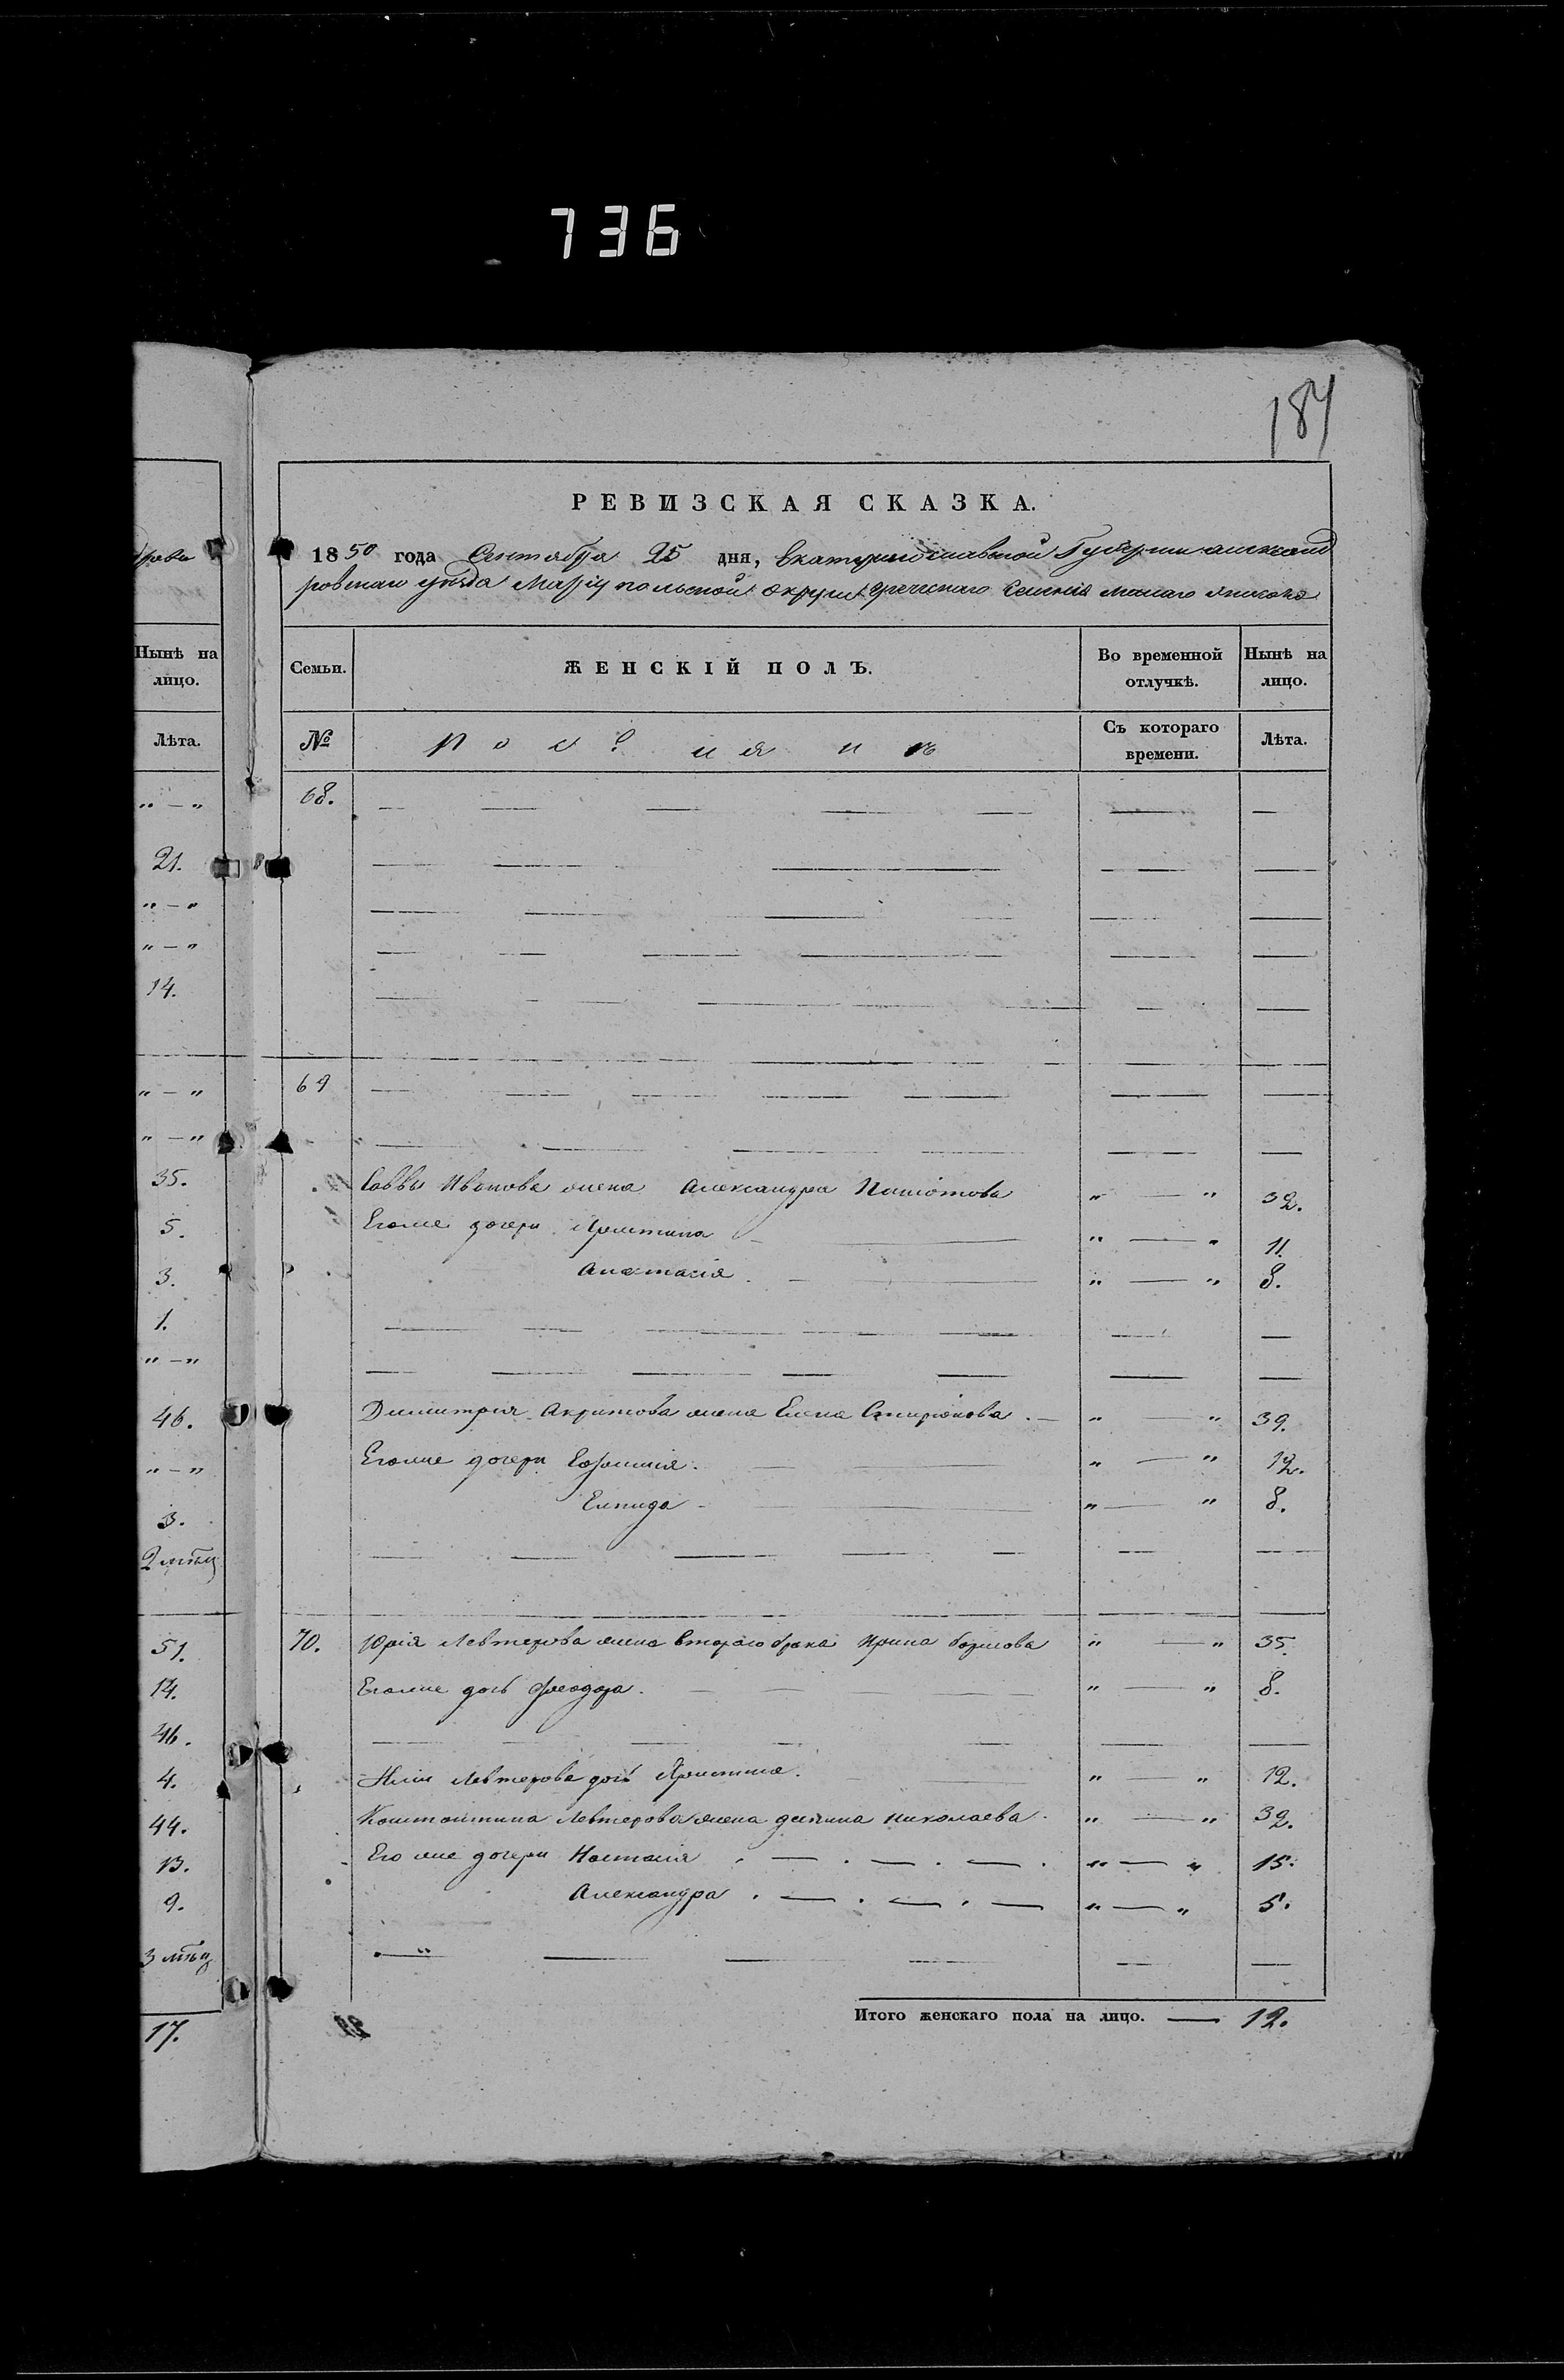 736
184
РЕВИЗСКАЯ СКАЗКА.
1850 года Сентября 25 дня, Екатеринославской Губернии Александ
ровскаго уѣзда Маріупольской округи греческаго Селенія Малаго Янисоля
Нынѣ на лицо.
Лѣта.
Семьи.
ЖЕНСКІЙ ПОЛЪ.
Во временной отлучкѣ.
Нынѣ на лицо.
№
Поселянъ
Съ котораго времени.
Лѣта.
" — " 68. — — — — — — —
21. — — — — —
" — " — — — — — —
" — " — — — — — —
14. — — — — — —
" — " 69 — — — — — — —
" — " — — — — — —
35. Саввы Иванова жена Александра " — " 32.
5. Егоже дочери Христина — " — " 11.
3. Анастасія — " — " 8.
1. — — — — — — —
" — " — — — — — — —
46. Димитрія Акритова жена Елена Спиридонова — " — " 39.
" — " Егоже дочери Евфимія — " — " 12.
3. Елпида — " — " 8.
2 мѣсц — — — — — — —
51. 70. Юрія Левтерова жена втораго брака Ирина " — " 35.
14. Егоже дочь Феодора — " — " 8.
46. — — — — — — —
4. Иліи Левтерова дочь Христина " — " 12.
44. Константина Левтерова жена Николаева " — " 32.
13. Его же дочери Настасія — — — " — " 15.
9. Александра — — — " — " 5.
3 мѣсц — — — — — —
17.
Итого женскаго пола на лицо. — 12.